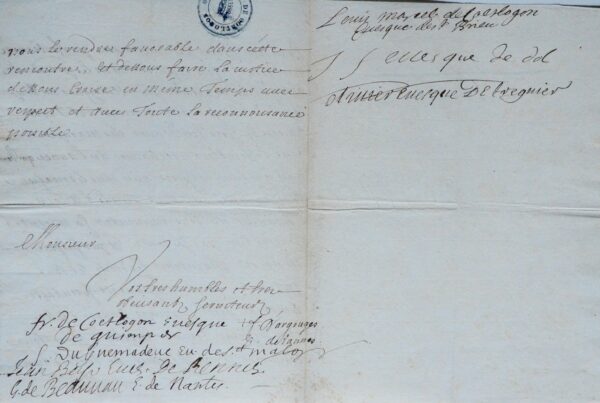 vous le rendres favorable dans cete
rencontre. et de nous faire la justice
de nous croire en meme temps avec
respect et avec toute la reconnoisance
possible
Monsieur
Vos tres humbles et tres
obeisants serviteurs
fr. de Coetlogon Evesque
de quimper
f. d'argouges
E. de vannes
f. Du guemadeuc Ev. de st malo
Jean Bap. Eves. De Rennes
G. de Beauvau E. de Nantes.
Louis marcel de Coetlogon
Evesque de st Brieu
J f evesque de dol
olivier Evesque De treguier